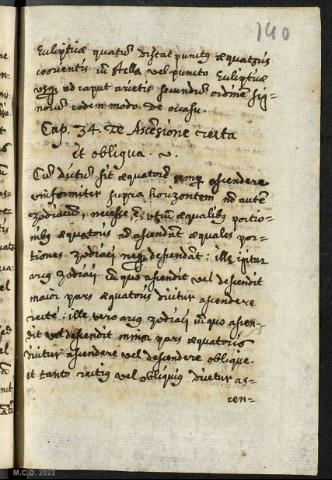 140
Eclipticæ quatuor distat punctus æquatoris
coorientis cū stella vel puncto Eclipticæ
usque ad caput arietis secundū ordinem sig-
norum eodem modo de occasu.
Cap. 34. De Ascēsione recta
et obliqua.
Cū dictum sit æquatorē semper ascendere
uniformiter supra horizontem nō autē
zodiacum, necesse ē cū æqualibus portio-
nibus æquatoris nō ascendant æquales por-
tiones zodiaci neque descendāt: ille igitur
arcus zodiaci cū quo ascendit vel descendit
maior pars æquatoris dicitur ascendere
recte: ille vero arcus zodiaci cū quo ascen-
dit vel descendit minor pars æquatoris
dicitur ascendere vel descendere oblique.
et tanto rectius vel obliquius dicetur as-
cen-
M.C.D. 2022